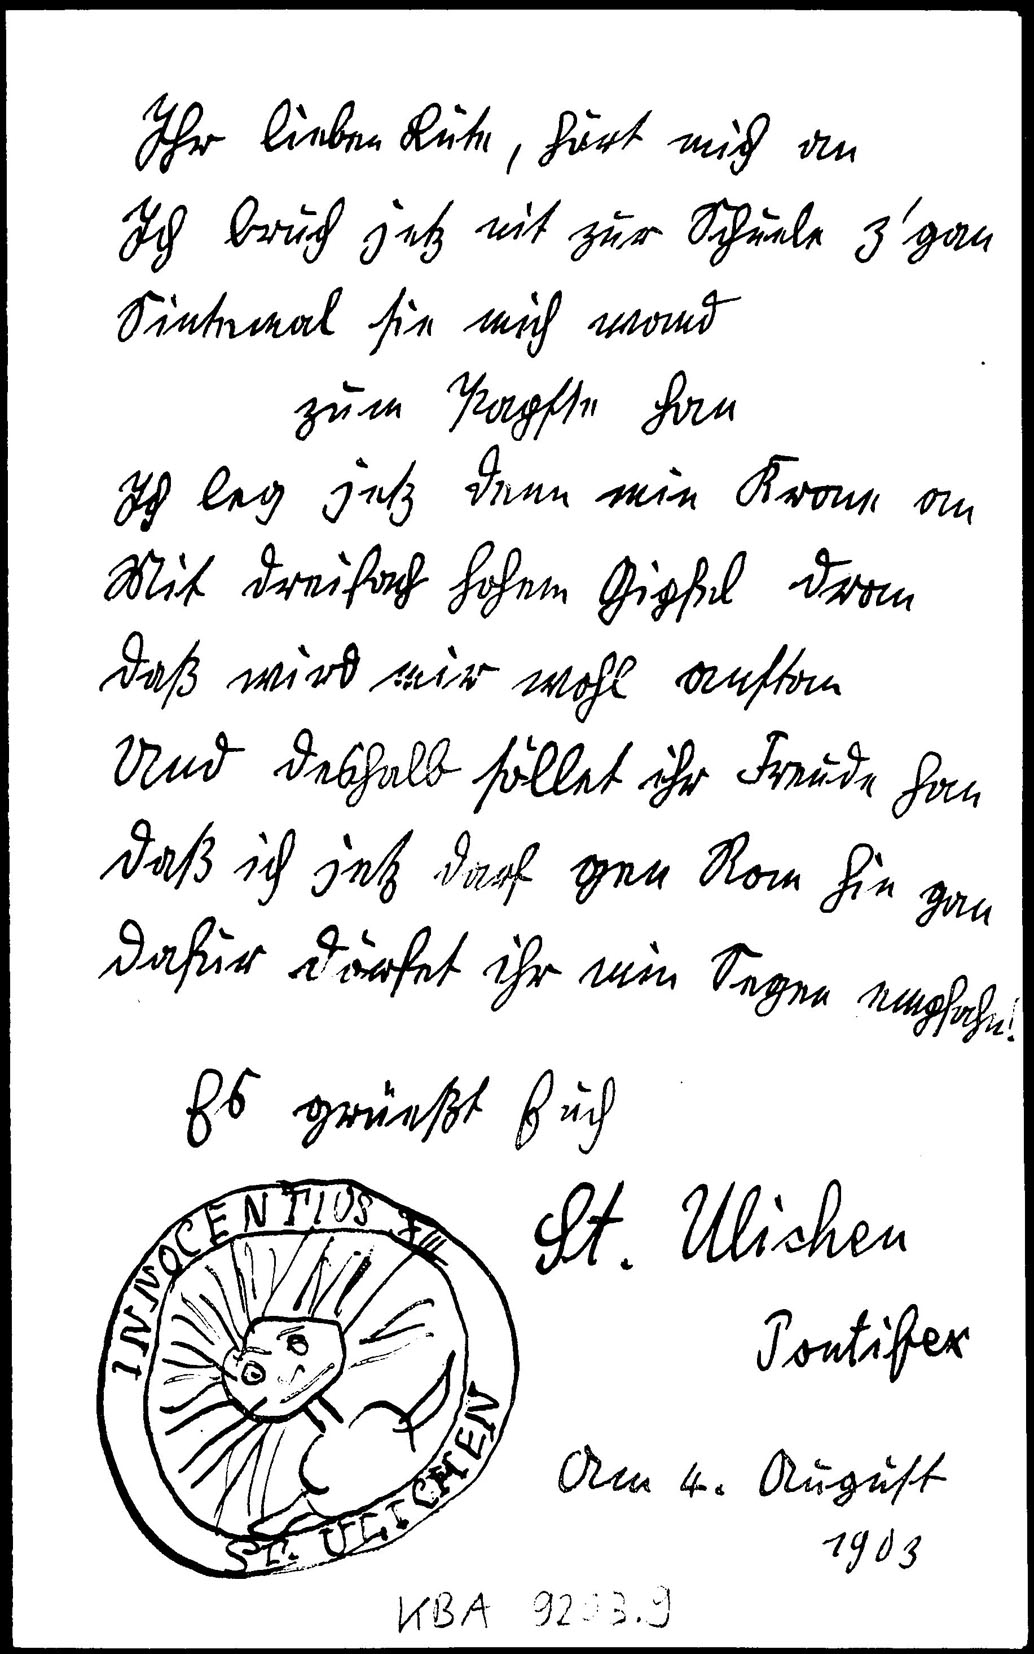 Ihr lieben Lüte, hört mich an
Ich bruch jetz nit zur Schuele z'gan
Sintemal sie mich wand
zum Papste han
Ich leg jetz denn min Krone an
Mit dreifach hohem Gipfel dran
Daß wird mir wohl anstan
Und deshalb söllet ihr Freude han
Daß ich jetz darf gen Rom hin gan
Dafür dörfet ihr min Segen empfahn!
Es grüeßt Euch
St. Ulichen
Pontifex
Am 4. August
1903
INNOCENTIUS XIII
ST. ULICHEN
KBA 9293.9